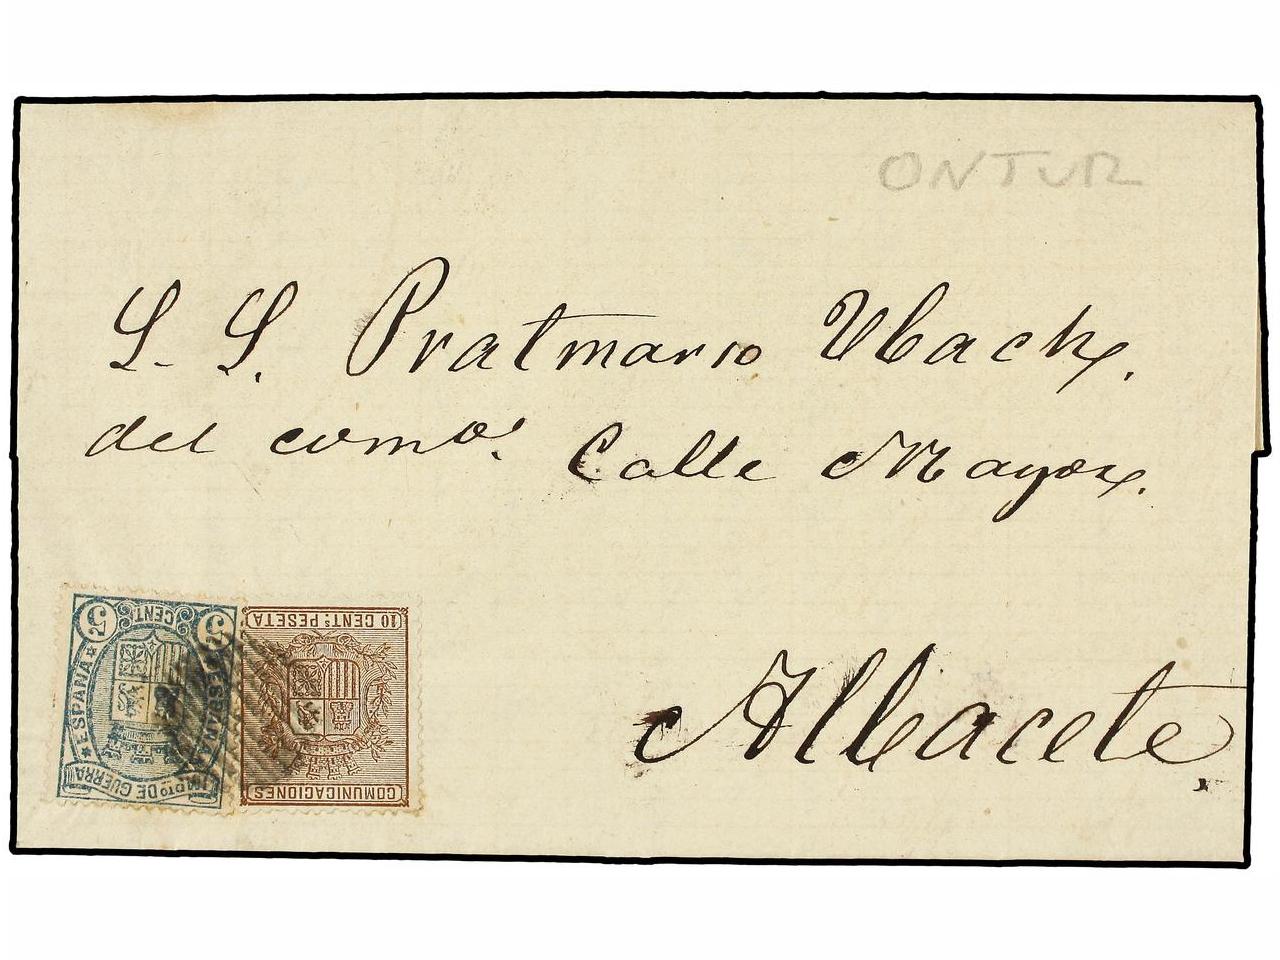 ONTUR
S. S. Pratmarso Ubach.
del comº. Calle Mayor.
Albacete.
5 CENT. 5
* ESPAÑA * * ESPAÑA *
IMPTO DE GUERRA
10 CENTS PESETA
COMUNICACIONES